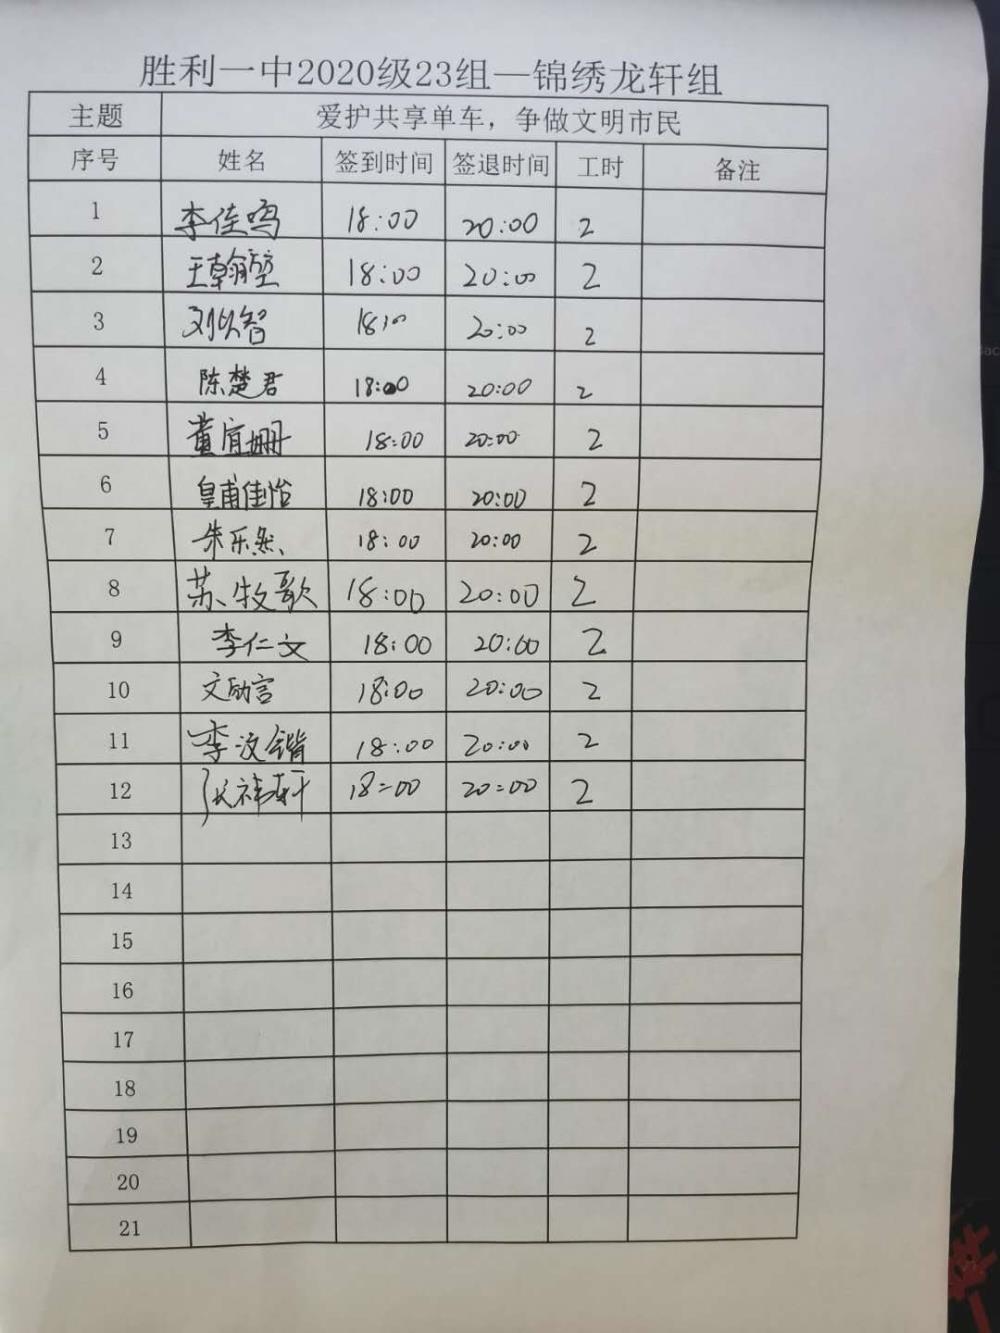 胜利一中2020级23组—锦绣龙轩组
主题 爱护共享单车，争做文明市民
序号 姓名 签到时间 签退时间 工时 备注
1 李佳鸣 18:00 20:00 2
2 王翰堃 18:00 20:00 2
3 刘以智 18:00 20:00 2
4 陈楚君 18:00 20:00 2
5 董宜姗 18:00 20:00 2
6 皇甫佳怡 18:00 20:00 2
7 朱乐然 18:00 20:00 2
8 苏牧歌 18:00 20:00 2
9 李仁文 18:00 20:00 2
10 文励言 18:00 20:00 2
11 李汶锴 18:00 20:00 2
12 张祎轩 18:00 20:00 2
13
14
15
16
17
18
19
20
21